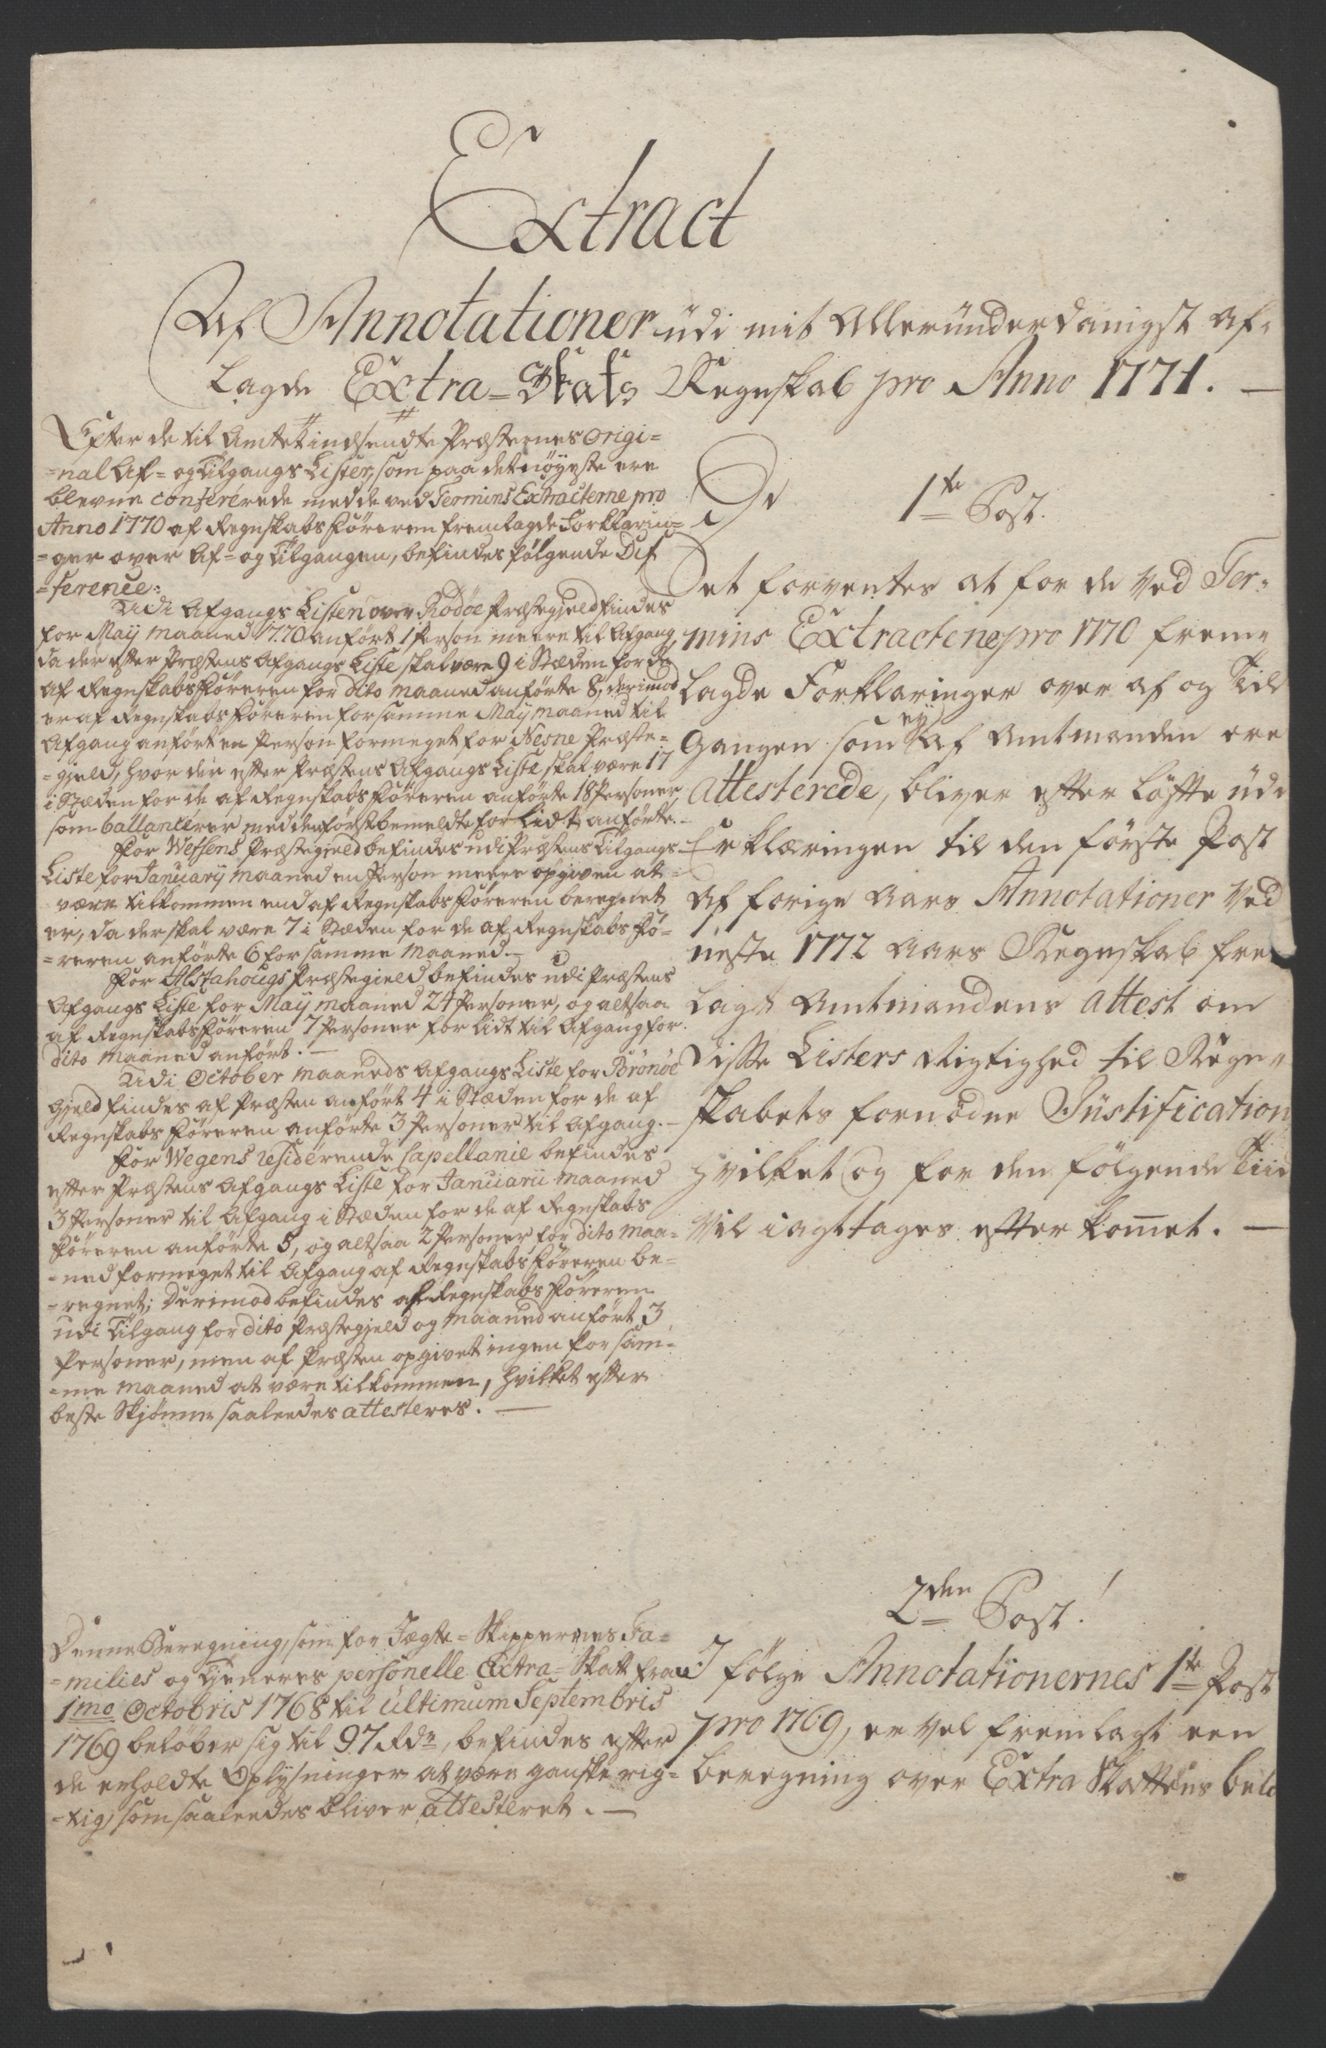 Extract
Af Annotationer udi mit Alleründerdanigst Af-
lagde Extra-Skats Regnskab pro Anno 1771. —
Efter de til Amtet indsendte Præsternes origi-
-nal Af- og Tilgangs Lister, som paa det nøyeste ere
blevne confererede med de ved Termins Extracterne pro
Anno 1770 af Regnskabs Føreren fremlagde Forklarin-
-ger over Af- og Tilgangen, befindes følgende Dif-
-ference:
Udi Afgangs Listen over Rodøe Præstegjeld findes
for Maij maaned 1770 anført 1 Person meere til Afgang,
da der efter Præstens Afgangs Liste skal være 9 i Stæden for de
af Regnskabs Føreren for dito maaned anførte 8, derimod
er af Regnskabs Føreren for samme Maij maaned til
Afgang anført en Person formeget for Nesne Præste-
-gjeld, hvor der efter Præstens Afgangs Liste skal være 17
i Stæden for de af Regnskabs Føreren anførte 18 Personer,
som ballancerer med den først bemeldte for lidt anførte.
For Wefsens Præstegjeld befindes udi Præstens Tilgangs
Liste for Januarij maaned en Person meere opgiven at
være tilkommen end af Regnskabs Føreren beregnet
er, da der skal være 7 i Stæden for de af Regnskabs Fø-
-reren anførte 6 for samme Maaned. —
For Alstahougs Præstegield befindes udi Præstens
Afgangs Liste for Maij maaned 24 Personer, og altsaa
af Regnskabs Føreren 7 Personer for lidt til Afgang for
dito maaned anført. —
Udi October maaneds Afgangs Liste for Brønøe
gjeld findes af Præsten anført 4 i Stæden for de af
Regnskabs Føreren anførte 3 Personer til Afgang. —
For Wegens residerende Capellanie befindes
efter Præstens Afgangs Liste for Januarii maaned
3 Personer til Afgang i Stæden for de af Regnskabs
Føreren anførte 5, og altsaa 2 Personer for dito maa-
-ned formeget til Afgang af Regnskabs Føreren be-
-regnet; Derimod befindes af Regnskabs Føreren
udi Tilgang for dito Præstegjeld og maaned anført 3
Personer, men af Præsten opgivet ingen for sam-
-me maaned at være tilkommen, hvilket efter
beste Skjønne saaleedes attesteres. —
1te Post.
Det forventes at for de Ved Ter-
mins Extracterne pro 1770 frem-
lagde Forklaringer over af og Til
Gangen som ey Af Amtmanden ere
attesterede, bliver efter Løfte üdi
Erklæringen til den første Post
Af forige Aars Annotationer Ved
neste 1772 Aars Regnskab frem
lagt Amtmandens Attest om
disse Listers Rigtighed til Regn-
skabets fornødne Justification
hvilket og for den følgende Tiid
Vil iagttages efterkomet. —
Denne Beregning, som for Jægte-Skippernes Fa-
-milies og Tjeneres personelle Extra-Skatt fra
1mo Octobris 1768 til ultimum Septembris
1769 beløber sig til 97 Rdr, befindes efter
de erholdte Oplysninger at være ganske rig-
-tig, som saaleedes bliver attesteret. —
2den Post.
I følge Annotationernes 1te Post
pro 1769, er vel fremlagt een
beregning over Extra Skattens belø